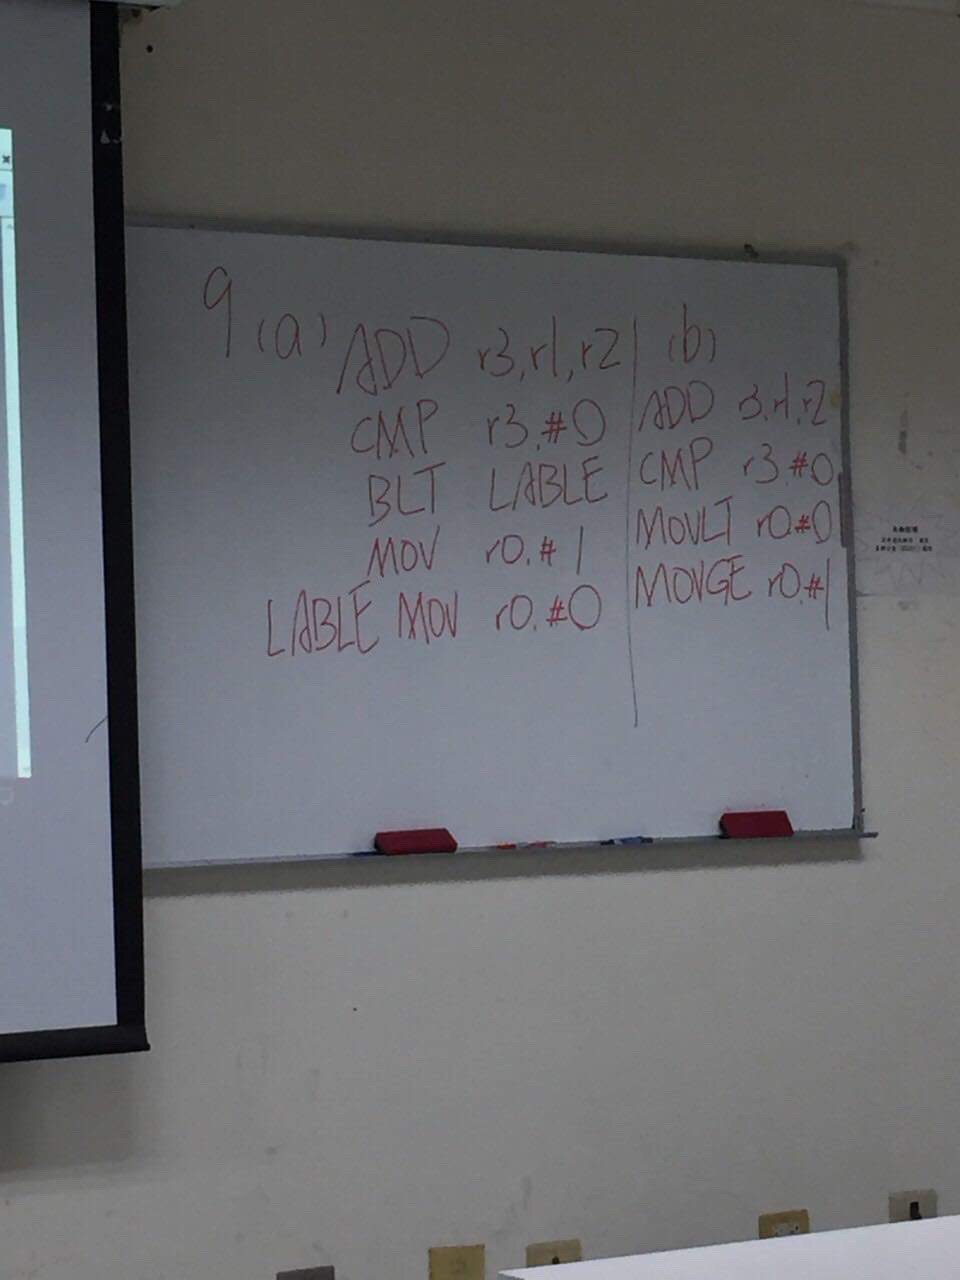 9 (a) ADD r3,r1,r2
CMP r3,#0
BLT LABLE
MOV r0,#1
LABLE MOV r0,#0
(b)
ADD r3,r1,r2
CMP r3,#0
MOVLT r0,#0
MOVGE r0,#1